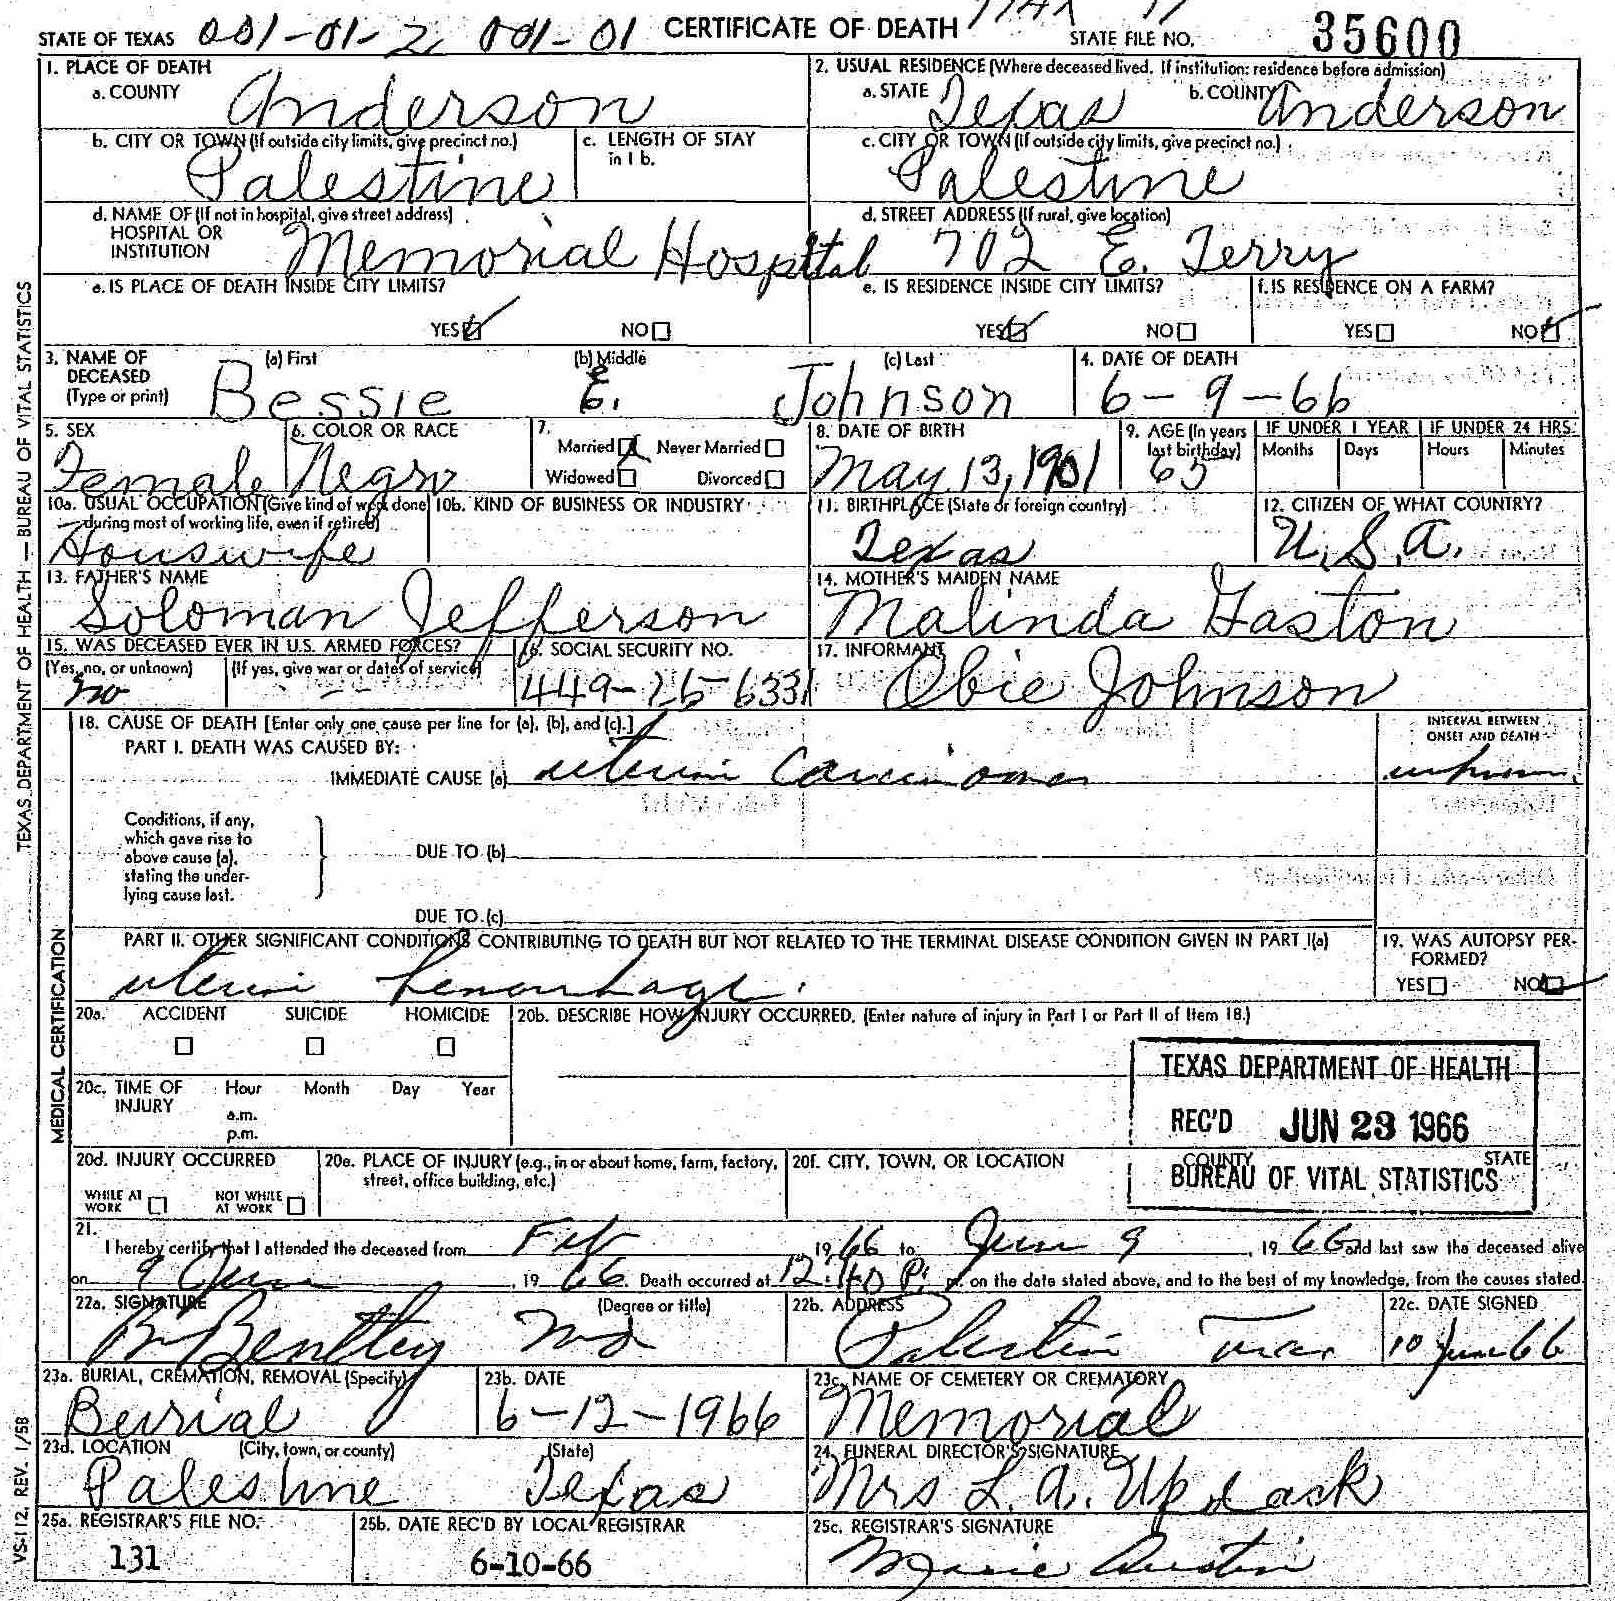 STATE OF TEXAS 001-01-2 001-01 CERTIFICATE OF DEATH STATE FILE NO. 35600
1. PLACE OF DEATH
a. COUNTY Anderson
2. USUAL RESIDENCE (Where deceased lived. If institution: residence before admission)
a. STATE Texas b. COUNTY Anderson
b. CITY OR TOWN (If outside city limits, give precinct no.) Palestine
c. LENGTH OF STAY in 1 b.
c. CITY OR TOWN (If outside city limits, give precinct no.) Palestine
d. NAME OF (If not in hospital, give street address) HOSPITAL OR INSTITUTION Memorial Hospital
d. STREET ADDRESS (If rural, give location) 702 E. Terry
e. IS PLACE OF DEATH INSIDE CITY LIMITS? YES NO
e. IS RESIDENCE INSIDE CITY LIMITS? YES NO
f. IS RESIDENCE ON A FARM? YES NO
3. NAME OF DECEASED (Type or print) (a) First Bessie (b) Middle E. (c) Last Johnson
4. DATE OF DEATH 6-9-66
5. SEX Female
6. COLOR OR RACE Negro
7. Married Never Married Widowed Divorced
8. DATE OF BIRTH May 13, 1901
9. AGE (In years last birthday) 65
IF UNDER 1 YEAR Months Days
IF UNDER 24 HRS. Hours Minutes
10a. USUAL OCCUPATION (Give kind of work done during most of working life, even if retired) Houswife
10b. KIND OF BUSINESS OR INDUSTRY
11. BIRTHPLACE (State or foreign country) Texas
12. CITIZEN OF WHAT COUNTRY? U.S.A.
13. FATHER'S NAME Soloman Jefferson
14. MOTHER'S MAIDEN NAME Malinda Gaston
15. WAS DECEASED EVER IN U.S. ARMED FORCES? (Yes, no, or unknown) no (If yes, give war or dates of service) --
16. SOCIAL SECURITY NO. 449-25-6331
17. INFORMANT Obie Johnson
18. CAUSE OF DEATH [Enter only one cause per line for (a), (b), and (c).]
INTERVAL BETWEEN ONSET AND DEATH
PART I. DEATH WAS CAUSED BY:
IMMEDIATE CAUSE (a) uterine Carcinoma unknown
Conditions, if any, which gave rise to above cause (a), stating the underlying cause last.
DUE TO (b)
DUE TO (c)
PART II. OTHER SIGNIFICANT CONDITIONS CONTRIBUTING TO DEATH BUT NOT RELATED TO THE TERMINAL DISEASE CONDITION GIVEN IN PART I(a)
uterine hemorrhage.
19. WAS AUTOPSY PERFORMED? YES NO
20a. ACCIDENT SUICIDE HOMICIDE
20b. DESCRIBE HOW INJURY OCCURRED. (Enter nature of injury in Part I or Part II of Item 18.)
20c. TIME OF INJURY Hour Month Day Year
a.m.
p.m.
TEXAS DEPARTMENT OF HEALTH
REC'D JUN 23 1966
BUREAU OF VITAL STATISTICS
20d. INJURY OCCURRED WHILE AT WORK NOT WHILE AT WORK
20e. PLACE OF INJURY (e.g., in or about home, farm, factory, street, office building, etc.)
20f. CITY, TOWN, OR LOCATION COUNTY STATE
21. I hereby certify that I attended the deceased from Feb 1966 to June 9, 1966 and last saw the deceased alive
on 9 June, 1966. Death occurred at 12:40 P. m. on the date stated above, and to the best of my knowledge, from the causes stated.
22a. SIGNATURE (Degree or title) Bentley MD
22b. ADDRESS Palestine Texas
22c. DATE SIGNED 10 June 66
23a. BURIAL, CREMATION, REMOVAL (Specify) Burial
23b. DATE 6-12-1966
23c. NAME OF CEMETERY OR CREMATORY Memorial
23d. LOCATION (City, town, or county) (State) Palestine Texas
24. FUNERAL DIRECTOR'S SIGNATURE Mrs L. A. Updack
25a. REGISTRAR'S FILE NO. 131
25b. DATE REC'D BY LOCAL REGISTRAR 6-10-66
25c. REGISTRAR'S SIGNATURE Marie Austin
TEXAS DEPARTMENT OF HEALTH — BUREAU OF VITAL STATISTICS
MEDICAL CERTIFICATION
VS-112, REV. 1/58